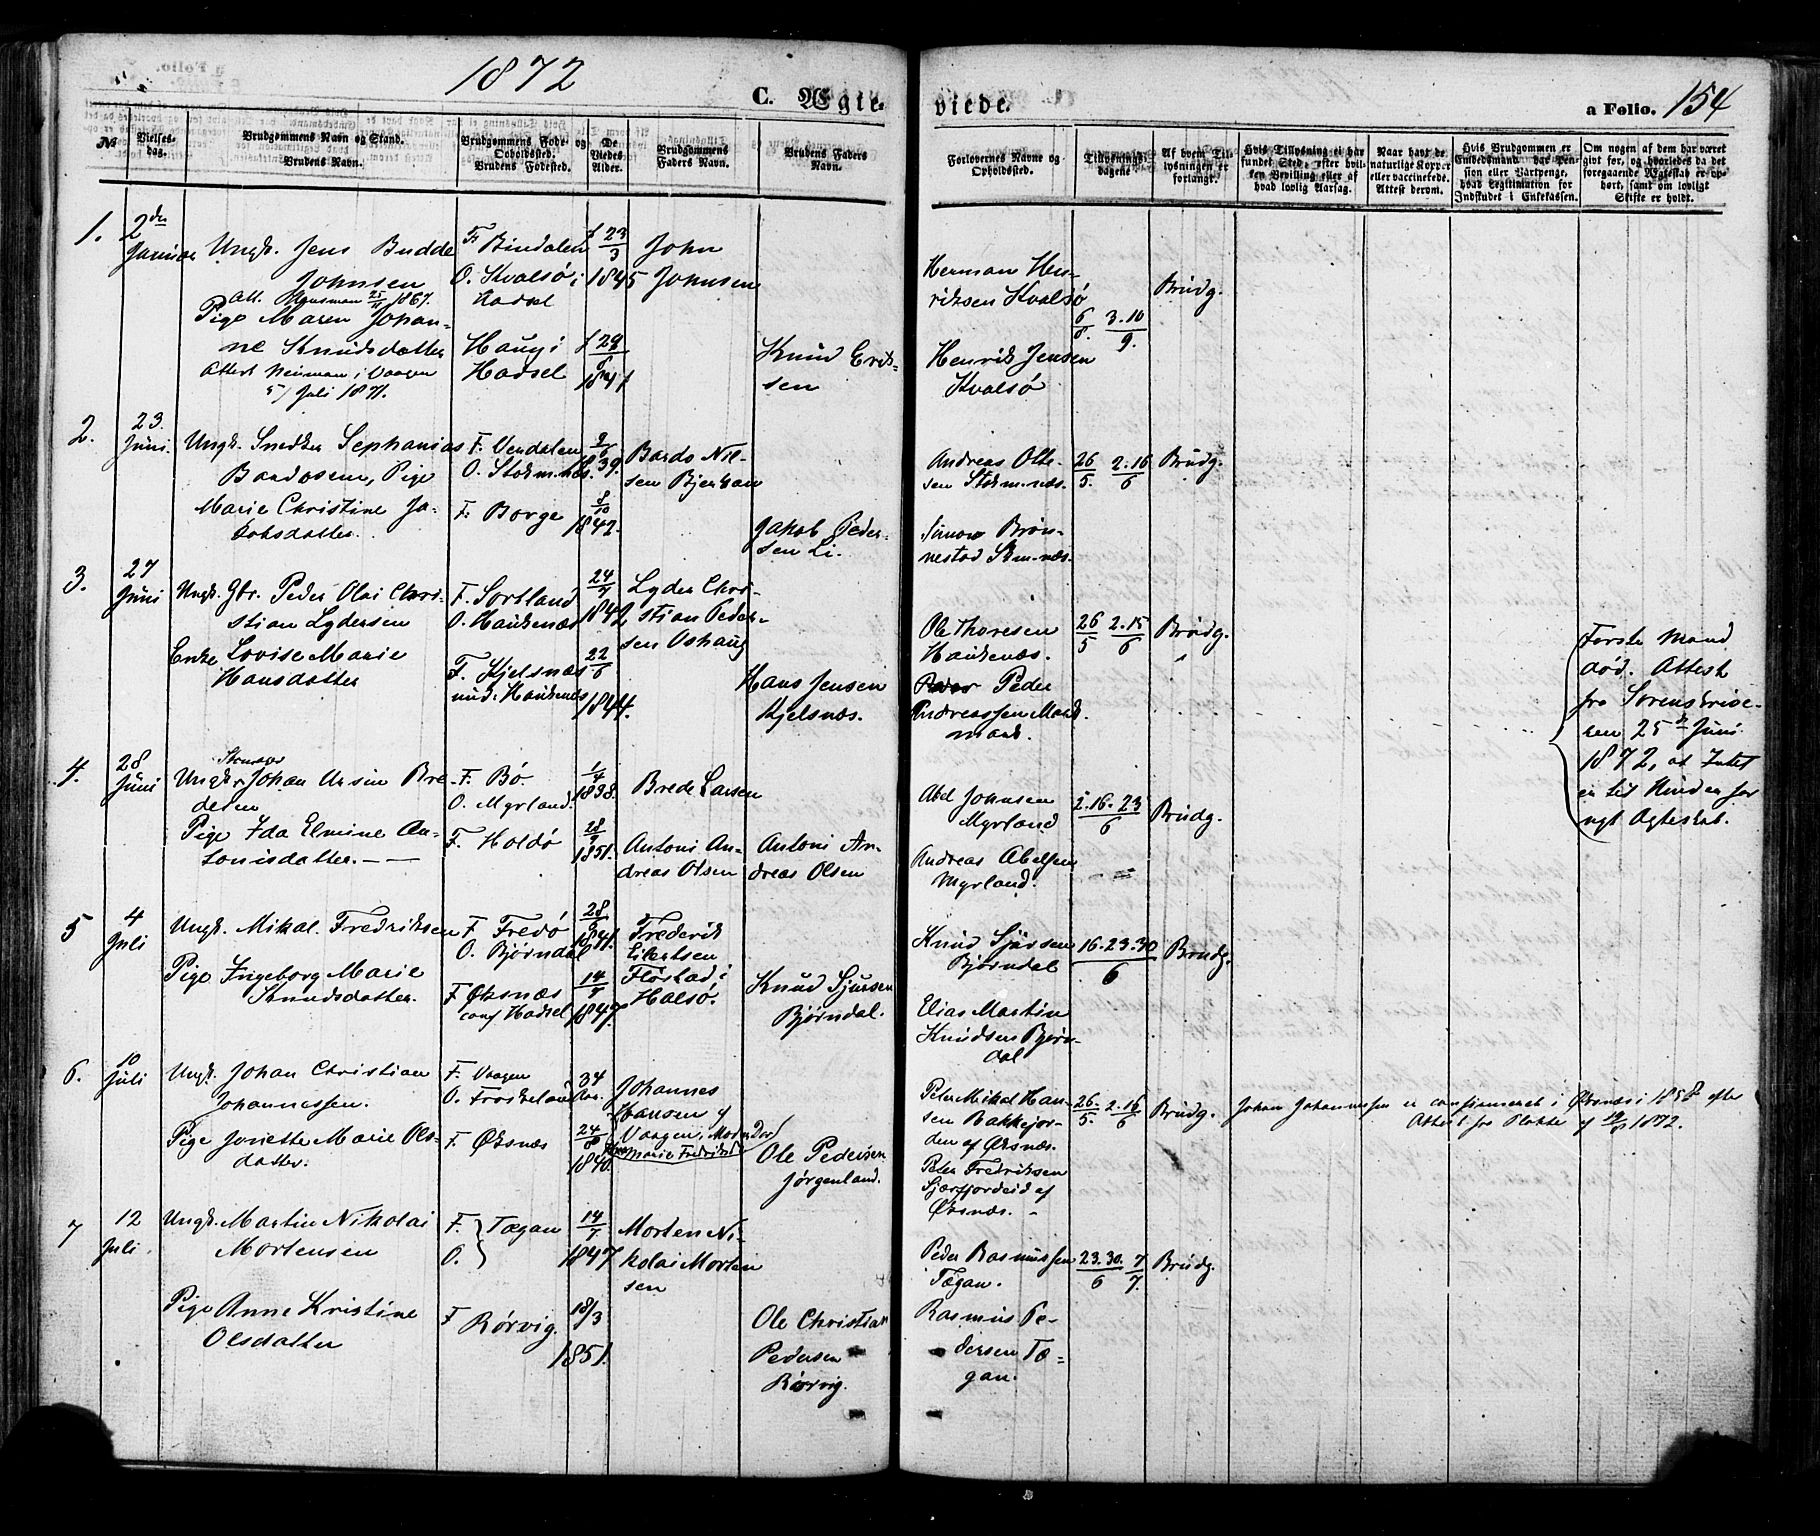 1872
C. Ægte-
viede.
a Folio. 154
No
Vielses-
dag.
Brudgommens Navn og Stand.
Brudens Navn.
Brudgommens Føde- og
Opholdssted.
Brudens Fødested.
De
Viedes
Alder.
Brudgommens
Faders Navn.
Brudens Faders
Navn.
Forlovernes Navne og
Opholdssted.
Tillysnings-
dagene
Af hvem Til-
lysningen er
forlangt.
Hvis Tillysning ei har
fundet Sted, efter hvil-
ken Bevilling eller af
hvad lovlig Aarsag.
Naar havt de
naturlige Kopper
eller vaccinerede.
Attest derom.
Hvis Brudgommen er
Embedsmand har Pen-
sion eller Vartpenge,
hvad Legitimation for
Indskudet i Enkekassen.
Om nogen af dem har været
gift før, og hvorledes da det
foregaaende Ægteskab er op-
hørt, samt om lovligt
Skifte er holdt.
1.
2den
Januar
Ungk. Jens Budde
Johnsen
Att. 25/11 1867.
Pige Maren Johan-
ne Knudsdatter
Attest Neuman i Vaagen
5/ Juli 1871.
F. Bindalen
O. Kvalsø i
Hadsel
Haug i
Hadsel
f 23/3
1845
1841
John
Johnsen
Knud Erik-
sen
Herman Hen-
riksen Kvalsø
Henrik Jensen
Kvalsø
3. 10
9.
Brudg.
2.
23.
Juni.
Ungk. Snedker Sephanias
Bardosen, Pige
Marie Christine Ja-
kobsdatter.
F. Verdalen
O. Stokm.næs.
F. Borge
1839.
8/10
1842.
Bardo Nil-
sen Bjerkan
Jakob Peder-
sen Li.
Andreas Otte-
sen Stokm.næs.
Simon Brøn-
nestad Stm.næs.
26/5. 2.16/6
Brudg.
3.
27
Juni
Ungk. Gbr. Peder Olai Chri-
stian Lydersen
Enke Lovise Marie
Hansdatter
F. Sortland
O. Haukenæs
F. Kjelsnæs
nu i Haukenæs
1842
22/6
1844.
Lyder Chri-
stian Peder-
sen Oshaug
Hans Jensen
Kjelsnæs.
Ole Thoresen
Haukenæs.
Peder
Andreassen Mark
26/5 2.15/6
Brudg.
"
Første Mand
død. Attest
fra Sorenskrive-
ren 25de Juni
1872, at Intet
er til Hinder for
nyt Ægteskab.
4.
28
Juni
Ungk. Johan Ursin Bre-
desen
Pige Ida Elmine An-
tonisdatter. — —
F. Bø.
O. Myrland.
F. Holdø
1/4
1838.
28/9
1851.
Brede Larsen
Antoni An-
dreas Olsen
Antoni An-
dreas Olsen
Abel Johnsen
Myrland
Andreas Abelsen
Myrland.
2.16.23
6
Brudg.
5
4
Juli
Ungk. Mikal Fredriksen
Pige Ingeborg Marie
Knudsdatter.
F. Fredø
O. Bjørndal
F Øksnæs
conf Hadsel
1841.
1847.
Frederik
Eilertsen
Flørstad i
Halsø.
Knud Sjursen
Bjørndal.
Knud Sjursen
Bjørndal
Elias Martin
Knudsen Bjørn-
dal
16.23.30
6
Brudg.
6.
10
Juli
Ungk. Johan Christian
Johannessen.
Pige Jonette Marie Ols-
datter.
F. Vaagen
O. Froskeland
F. Øksnæs
34
Aar.
1840.
Johannes
Hansen af
Vaagen, Moder
Marie Fredriksd.
Ole Pedersen
Jørgenland.
Peter Mikal Han-
sen Bakkejor-
den af Øksnæs.
Peter Fredriksen
Sjørfjordeid af
Øksnæs. -
26/5. 2.16/6
Brudg.
Johan Johannessen er confirmeret i Øksnæs i 1858 efter
Attest fra Plahte af 1872.
7
12
Juli.
Ungk. Martin Nikolai
Mortensen
Pige Anne Kristine
Olsdatter
F.
O.
Tægan
F Rørvig.
1847
18/3
1851.
Morten Ni-
kolai Morten
sen
Ole Christian
Pedersen
Rørvig.
Peder Rasmussen
Tægan.
Rasmus Pe-
dersen Tæ-
gan.
23.30./6 7/7.
Brudg.